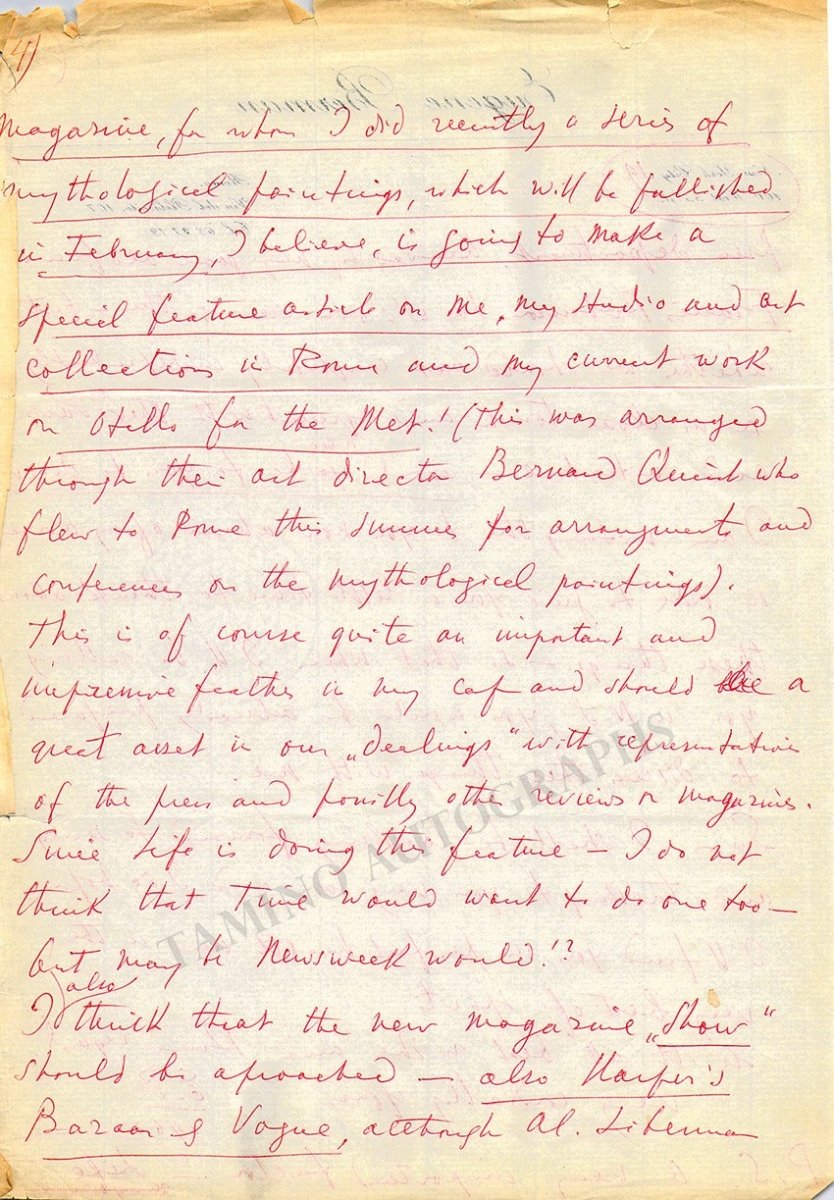 4)
magazine, for whom I did recently a series of
mythological paintings, which will be published
in February, I believe, is going to make a
special feature article on me, my studio and art
collections in Rome and my current work
on Otello for the Met! (This was arranged
through their art director Bernard Quint who
flew to Rome this summer for arrangments and
conferences on the mythological paintings).
This is of course quite an important and
impressive feather in my cap and should be a
great asset in our „dealings" with representatives
of the press and possibly other reviews or magazines.
Since Life is doing this feature – I do not
think that Time would want to do one too –
but may be Newsweek would!?
also
I think that the new magazine „Show"
should be aproached – also Harper's
Bazaar & Vogue, although Al. Liberman
Eugene Berman
TAMINO AUTOGRAPHS